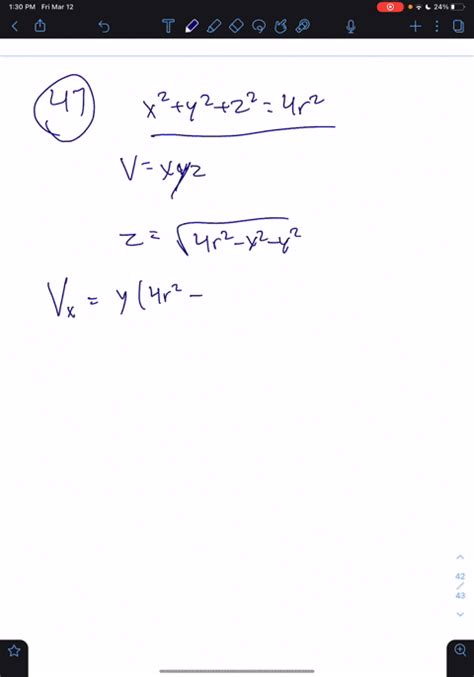 1:30 PM Fri Mar 12
24%
47
x²+y²+z²=4r²
V=xyz
z=√4r²-x²-y²
Vₓ = y(4r² -
42
/
43